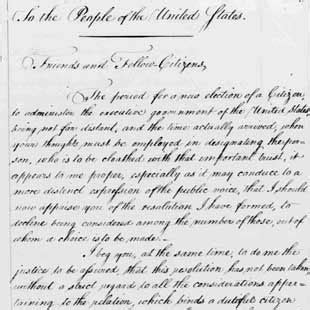 To the People of the United States.
Friends and Fellow-Citizens,
The period for a new election of a Citizen,
to administer the executive government of the United States,
being not far distant, and the time actually arrived, when
your thoughts must be employed in designating the per-
son, who is to be cloathed with that important trust, it
appears to me proper, especially as it may conduce to a
more distinct expression of the public voice, that I should
now apprise you of the resolution I have formed, to
decline being considered among the number of those, out of
whom a choice is to be made.
I beg you, at the same time, to do me the
justice to be assured, that this resolution has not been taken,
without a strict regard to all the considerations apper-
taining to the relation, which binds a dutiful citizen